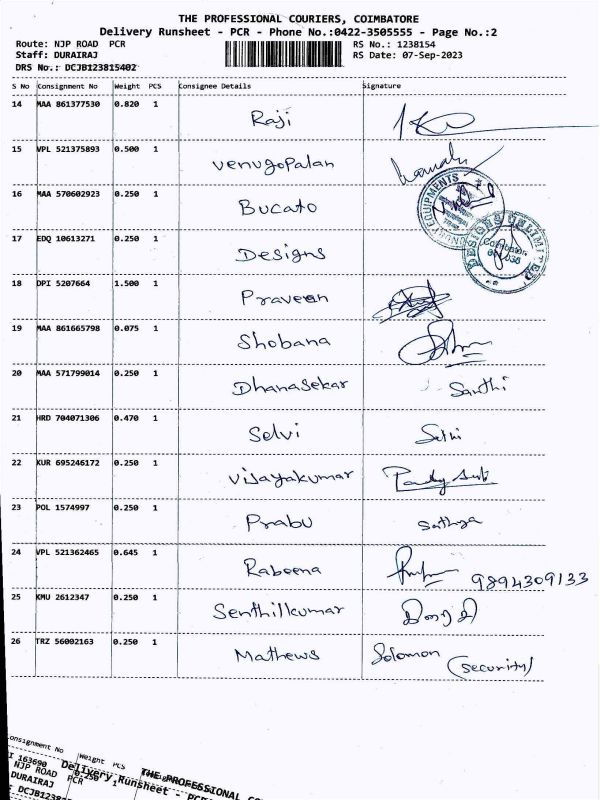 THE PROFESSIONAL COURIERS, COIMBATORE
Delivery Runsheet - PCR - Phone No.:0422-3505555 - Page No.:2
Route: NJP ROAD PCR RS No.: 1238154
Staff: DURAIRAJ RS Date: 07-Sep-2023
DRS No.: DCJB123815402
S No Consignment No Weight PCS Consignee Details Signature
14 MAA 861377530 0.820 1 Raji
15 VPL 521375893 0.500 1 Venugopalan
16 MAA 570602923 0.250 1 Bucato
EQUIPMENTS
17 EDQ 10613271 0.250 1 Designs
DESIGNS UNLIMITED
Coimbatore
18 DPI 5207664 1.500 1 Praveen
19 MAA 861665798 0.075 1 Shobana
20 MAA 571799014 0.250 1 Dhanasekar Santhi
21 HRD 704071306 0.470 1 Selvi
22 KUR 695246172 0.250 1 Vijayakumar
23 POL 1574997 0.250 1 Prabu Sathya
24 VPL 521362465 0.645 1 Raboena 9894309133
25 KMU 2612347 0.250 1 Senthilkumar
26 TRZ 56002163 0.250 1 Mathews Solomon (security)
onsignment No Weight PCS
I 163690 0.250 1
THE PROFESSIONAL CO
Delivery Runsheet - PCR
NJP ROAD PCR
DURAIRAJ